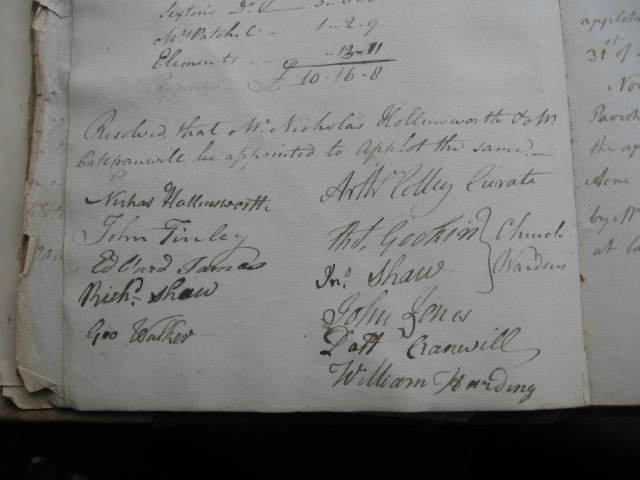 Sexton's Do
Mrs Patchel 1-2-9
Elements -13-11
£ 10-16-8
Resolved, that Mr. Nicholas Hollinsworth & Mr
be appointed to applot the same.
Nichas Hollinsworth
John Tinley
Edward James
Richd. Shaw
Geo Walker
Arthr Colley Curate
Thos. Gookin
Jno. Shaw
Church
Wardens
John Jones
Patt Cranwill
William Harding
applot
31st of
No
Parish
the ap
done
by Mr
at la